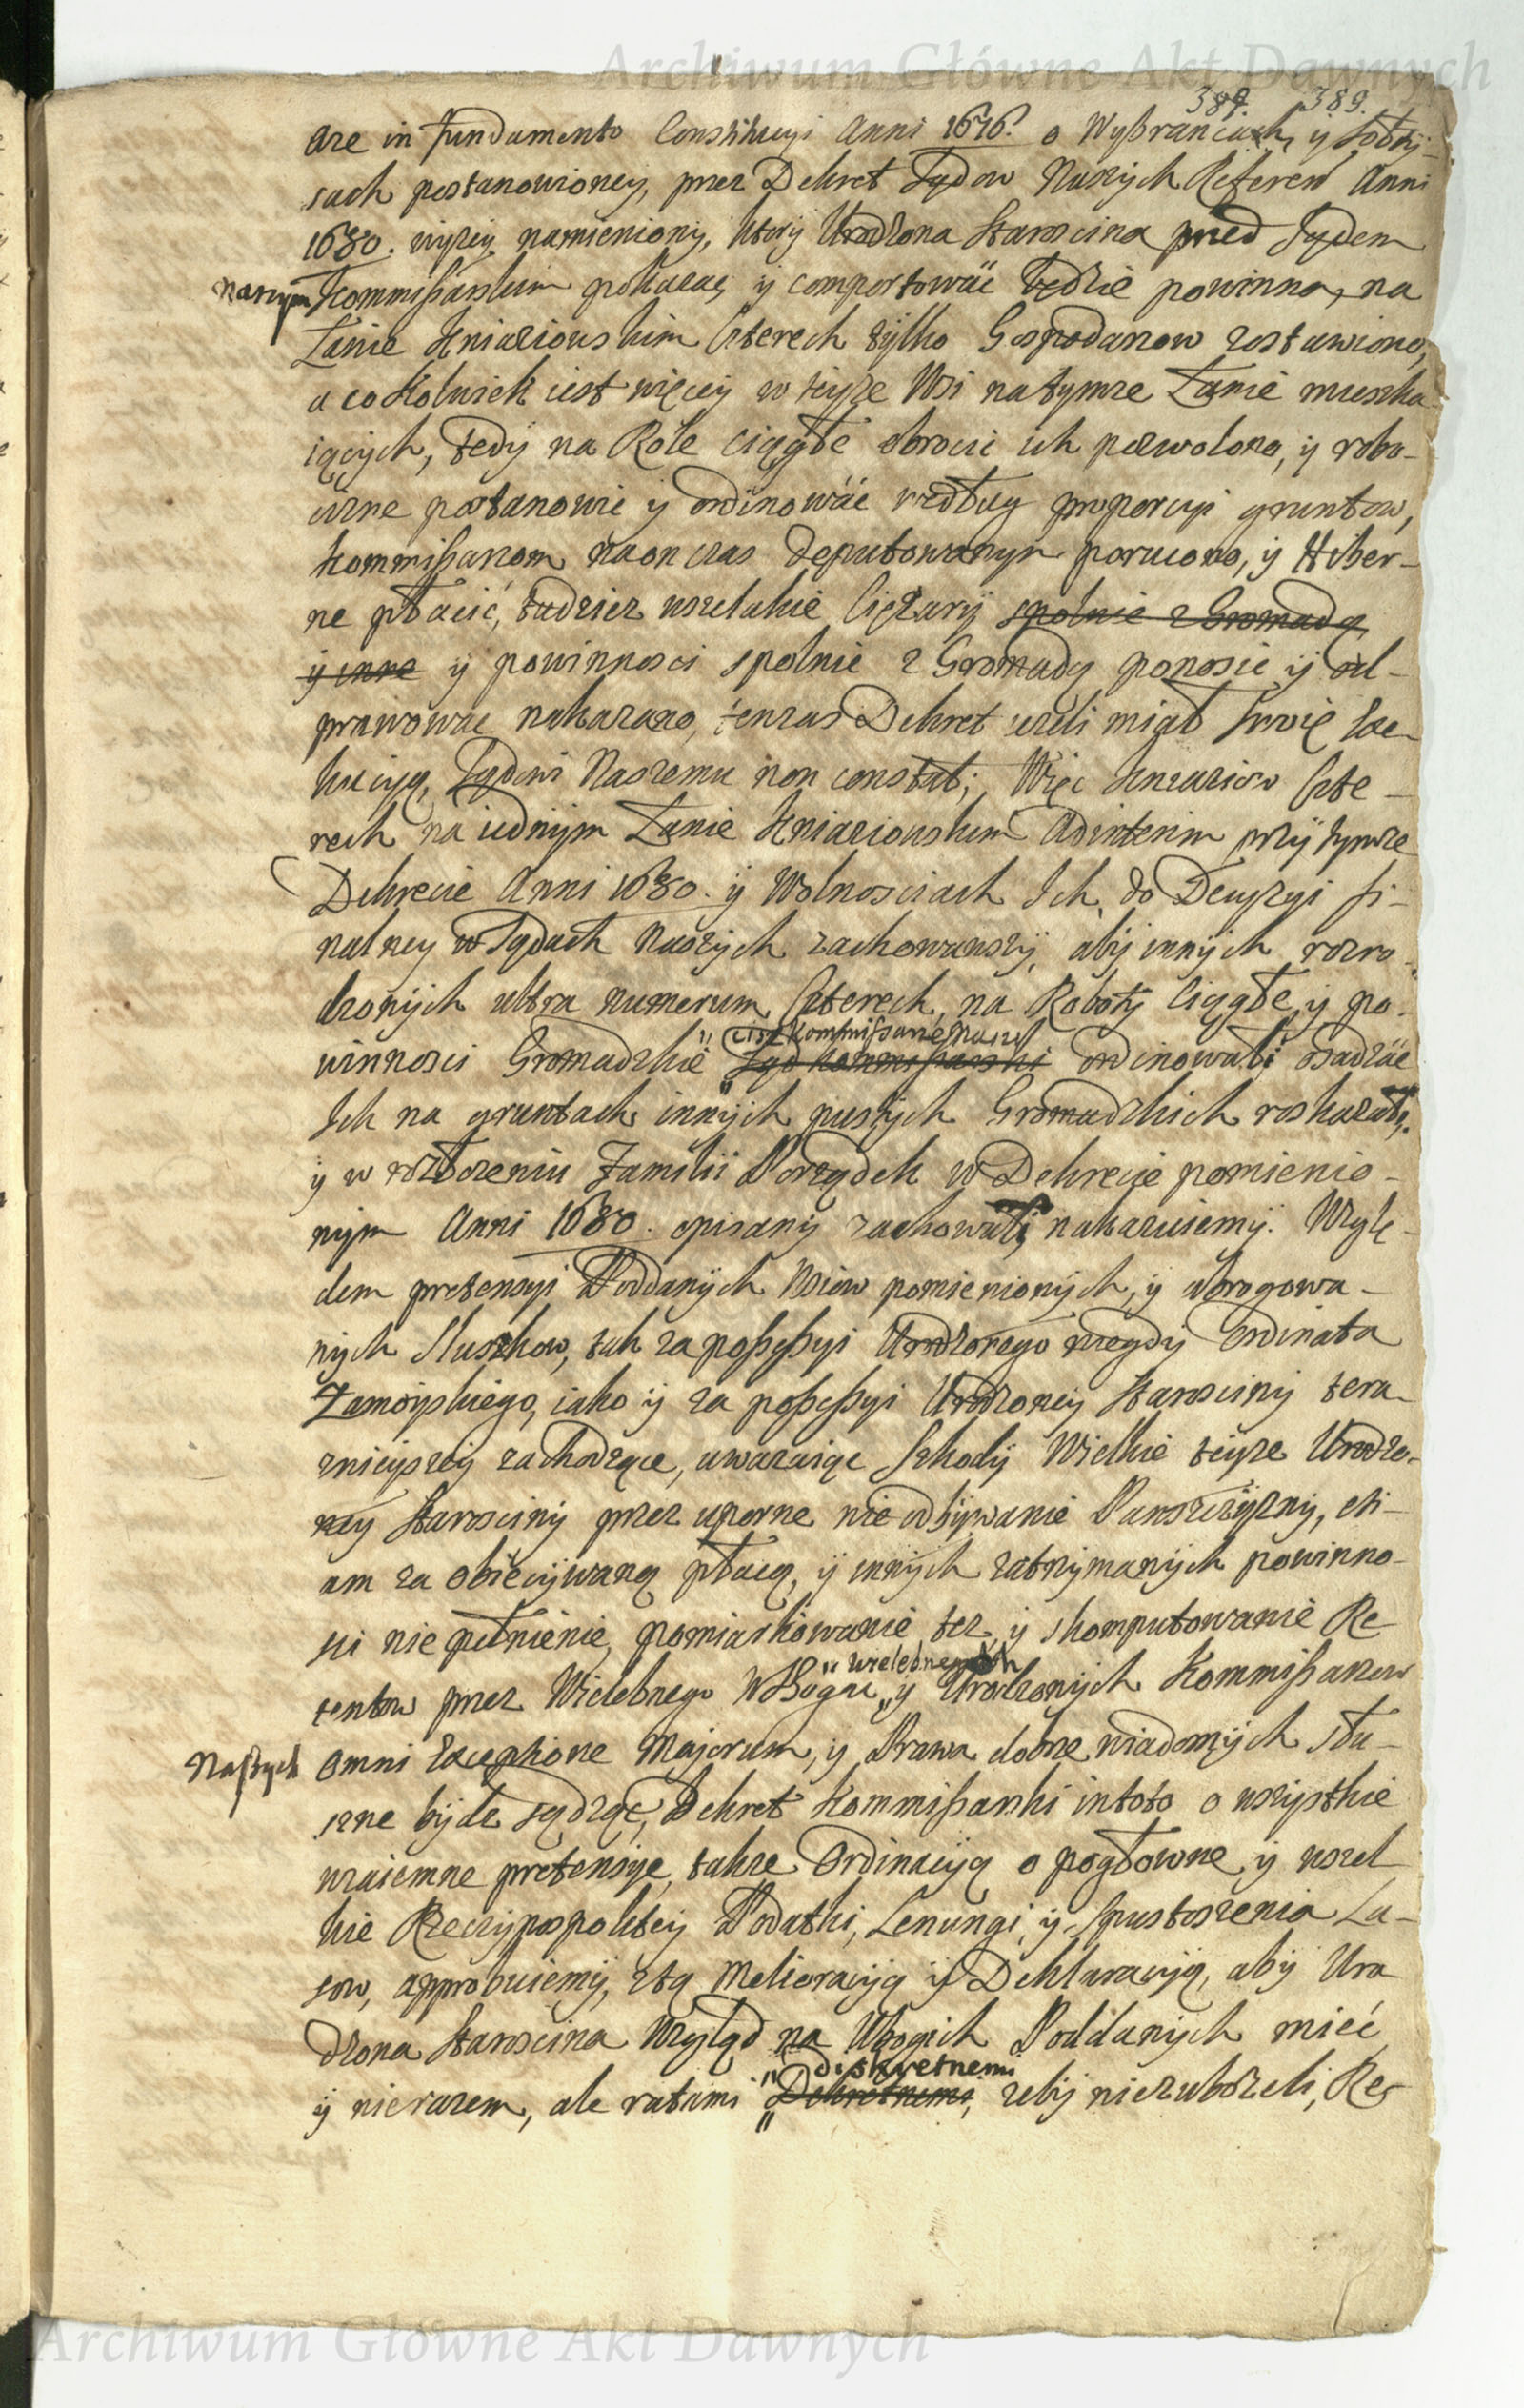 Archiwum Główne Akt Dawnych
389. 389.
are in fundamento Constitucyi Anni 1676. o Wybrancach, y Sołty-
sach postanowioney, przez Dekret Sądow Naszych Referen Anni
1680. wyżey namieniony, ktory Urodzona Starościna przed Sądem
naszym Kommissarskim pokazac y comportowac będzie powinna, na
Łanie Kniaziowskim Czterech tylko Gospodarzow zostawiono,
a cokolwiek iest więcey w teyże Wsi na tymże Łanie mieszka-
iących, tedy na Role ciągłe obrocic ich pozwolono, y robo-
cizne postanowic y ordinowác według proporcyi gruntow,
Kommissarzom naonczas deputowanym poruczono, y Hiber-
ne płacić, tudziesz wszelakie Ciężary spolnie z Gromadą
y inne y powinnosci spolnie z Gromadą ponosic y od-
prawowac nakazano, tenzas Dekret ieżeli miał swoię Exe-
kucyą, Sądowi Naszemu non constat; Więc Kniaziow Czte-
rech na iednym Łanie Kniaziowskim Adinterim przy tymże
Dekrecie Anni 1680. y Wolnosciach Ich, do Decyzyi fi-
nalney w Sądach Naszych zachowawszy, aby innych rozro-
dzonych ultra numerum Czterech, na Roboty Ciągłe y po-
ciż Kommissarze Nasi
winnosci Gromadzkie Sąd Kommissarski ordinowali osadzác
Ich na gruntach innych pustych Gromadzkich roskazali,
y w rozłożeniu Familii Porządek w Dekrecie pomienio-
nym Anni 1680. opisany zachowali, nakazuiemy. Wzglę-
dem pretensyi Poddanych Wsiow pomienionych, y abrogowa-
nych Sluszkow, tak za possessyi Urodzonego niegdy Ordinata
Zamoyskiego, iako y za possessyi Urodzoney Starościny tera-
znieyszey zachodzące, uwazaiąc Szkody Wielkie teyże Urodzo-
ney Starosciny przez uporne nie odbywanie Panszczyzny, eti-
am za obiecywaną płacą, y innych zatrzymanych powinno-
sci nie pełnienie, pomiarkowanie tez y skomputowanie Re-
wielebnego
tentow przez Wielebnego W Bogu y Urodzonych Kommissarzow
Naszych omni exceptione Majorum, y Prawa dobrze wiadomych słu-
szne bydz sądząc, Dekret Kommissarski in toto o wszystkie
wzaiemne pretensye, także Ordinacyą o pogłowne y wszel-
kie Rzeczypospolitey Podatki, Lenungi, y Spustoszenia La-
sow, approbuiemy, z tą Melioracyą y Deklaracyą, aby Uro-
dzona Starościna Wzgląd na Ubogich Poddanych mieć
diskretnemi
y nierazem, ale ratami Dekretnemi, żeby niezubożeli, Re-
Archiwum Główne Akt Dawnych